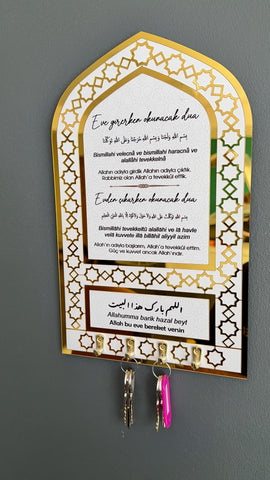 Eve girerken okunacak dua
بِسْمِ اللّٰهِ وَلَجْنَا وَ بِسْمِ اللّٰهِ خَرَجْنَا وَعَلَى اللّٰهِ تَوَكَّلْنَا
Bismillahi velecnâ ve bismillahi haracnâ ve
alallâhi tevekkelnâ
Allahın adıyla girdik Allahın adıyla çıktık.
Rabbimiz olan Allah'a tevekkül ettik.
Evden çıkarken okunacak dua
بِسْمِ اللّٰهِ تَوَكَّلْتُ عَلَى اللّٰهِ
Bismillâhi tevekkeltü alallahi ve lâ havle
velâ kuvvete illâ billâhil aliyyil azim
Allah'ın adıyla başlarım, Allah'a tevekkül ettim.
Güç ve kuvvet ancak Allah'ındır.
اللهم بارك هذا البيت
Allahumma barik hazal beyt
Allah bu eve bereket versin